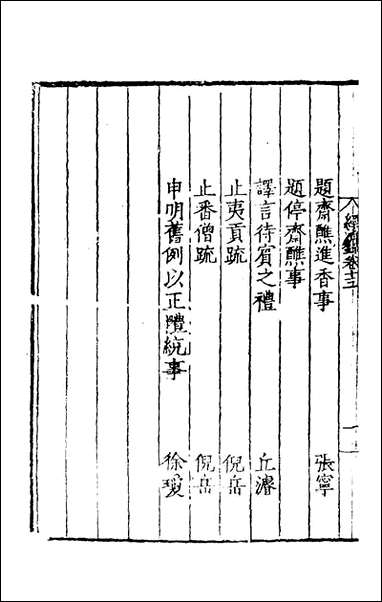 題齋醮進香事　張寧
題停齋醮事
譯言待賓之禮　丘濬
止夷貢疏　倪岳
止番僧疏　倪岳
申明舊例以正體統事　徐瓊
卷十三